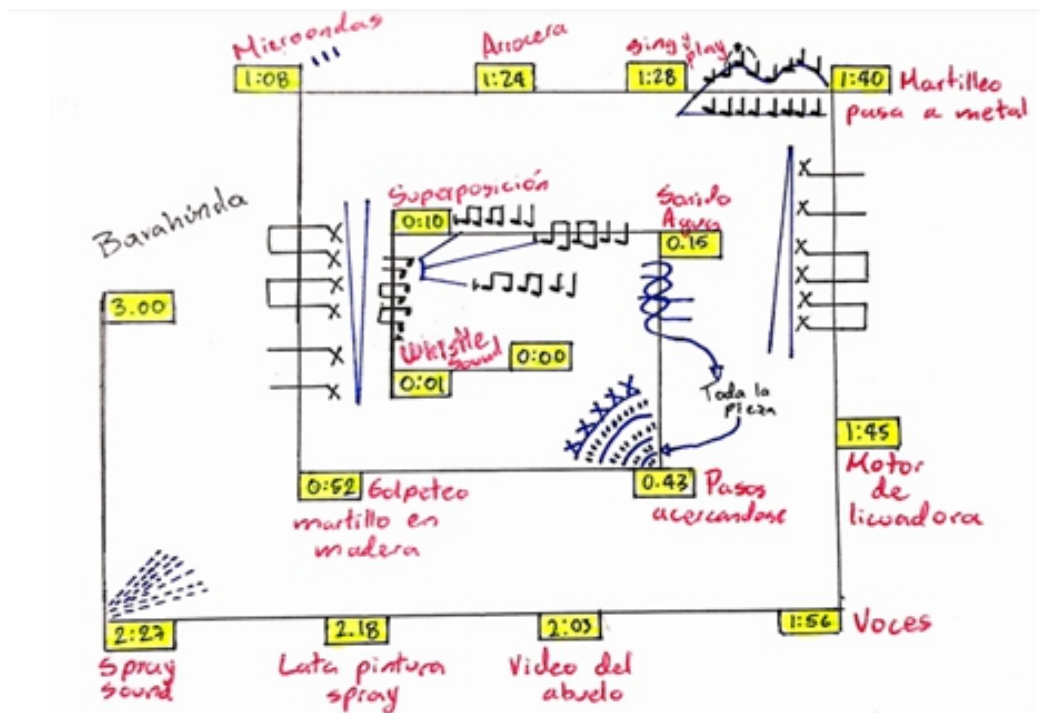 Microondas
1:08
Arrocera
1:24
Sing y play
1:28
1:40
Martilleo
pasa a metal
Barahúnda
Superposición
0:10
Sonido
Agua
0.15
3.00
Whistle
sound
0:00
0:01
Toda la
pieza
1:45
Motor
de
licuadora
0:52
Golpeteo
martillo en
madera
0.43
Pasos
acercandose
2:27
Spray
sound
2.18
Lata pintura
spray
2:03
Video del
abuelo
1:56
Voces